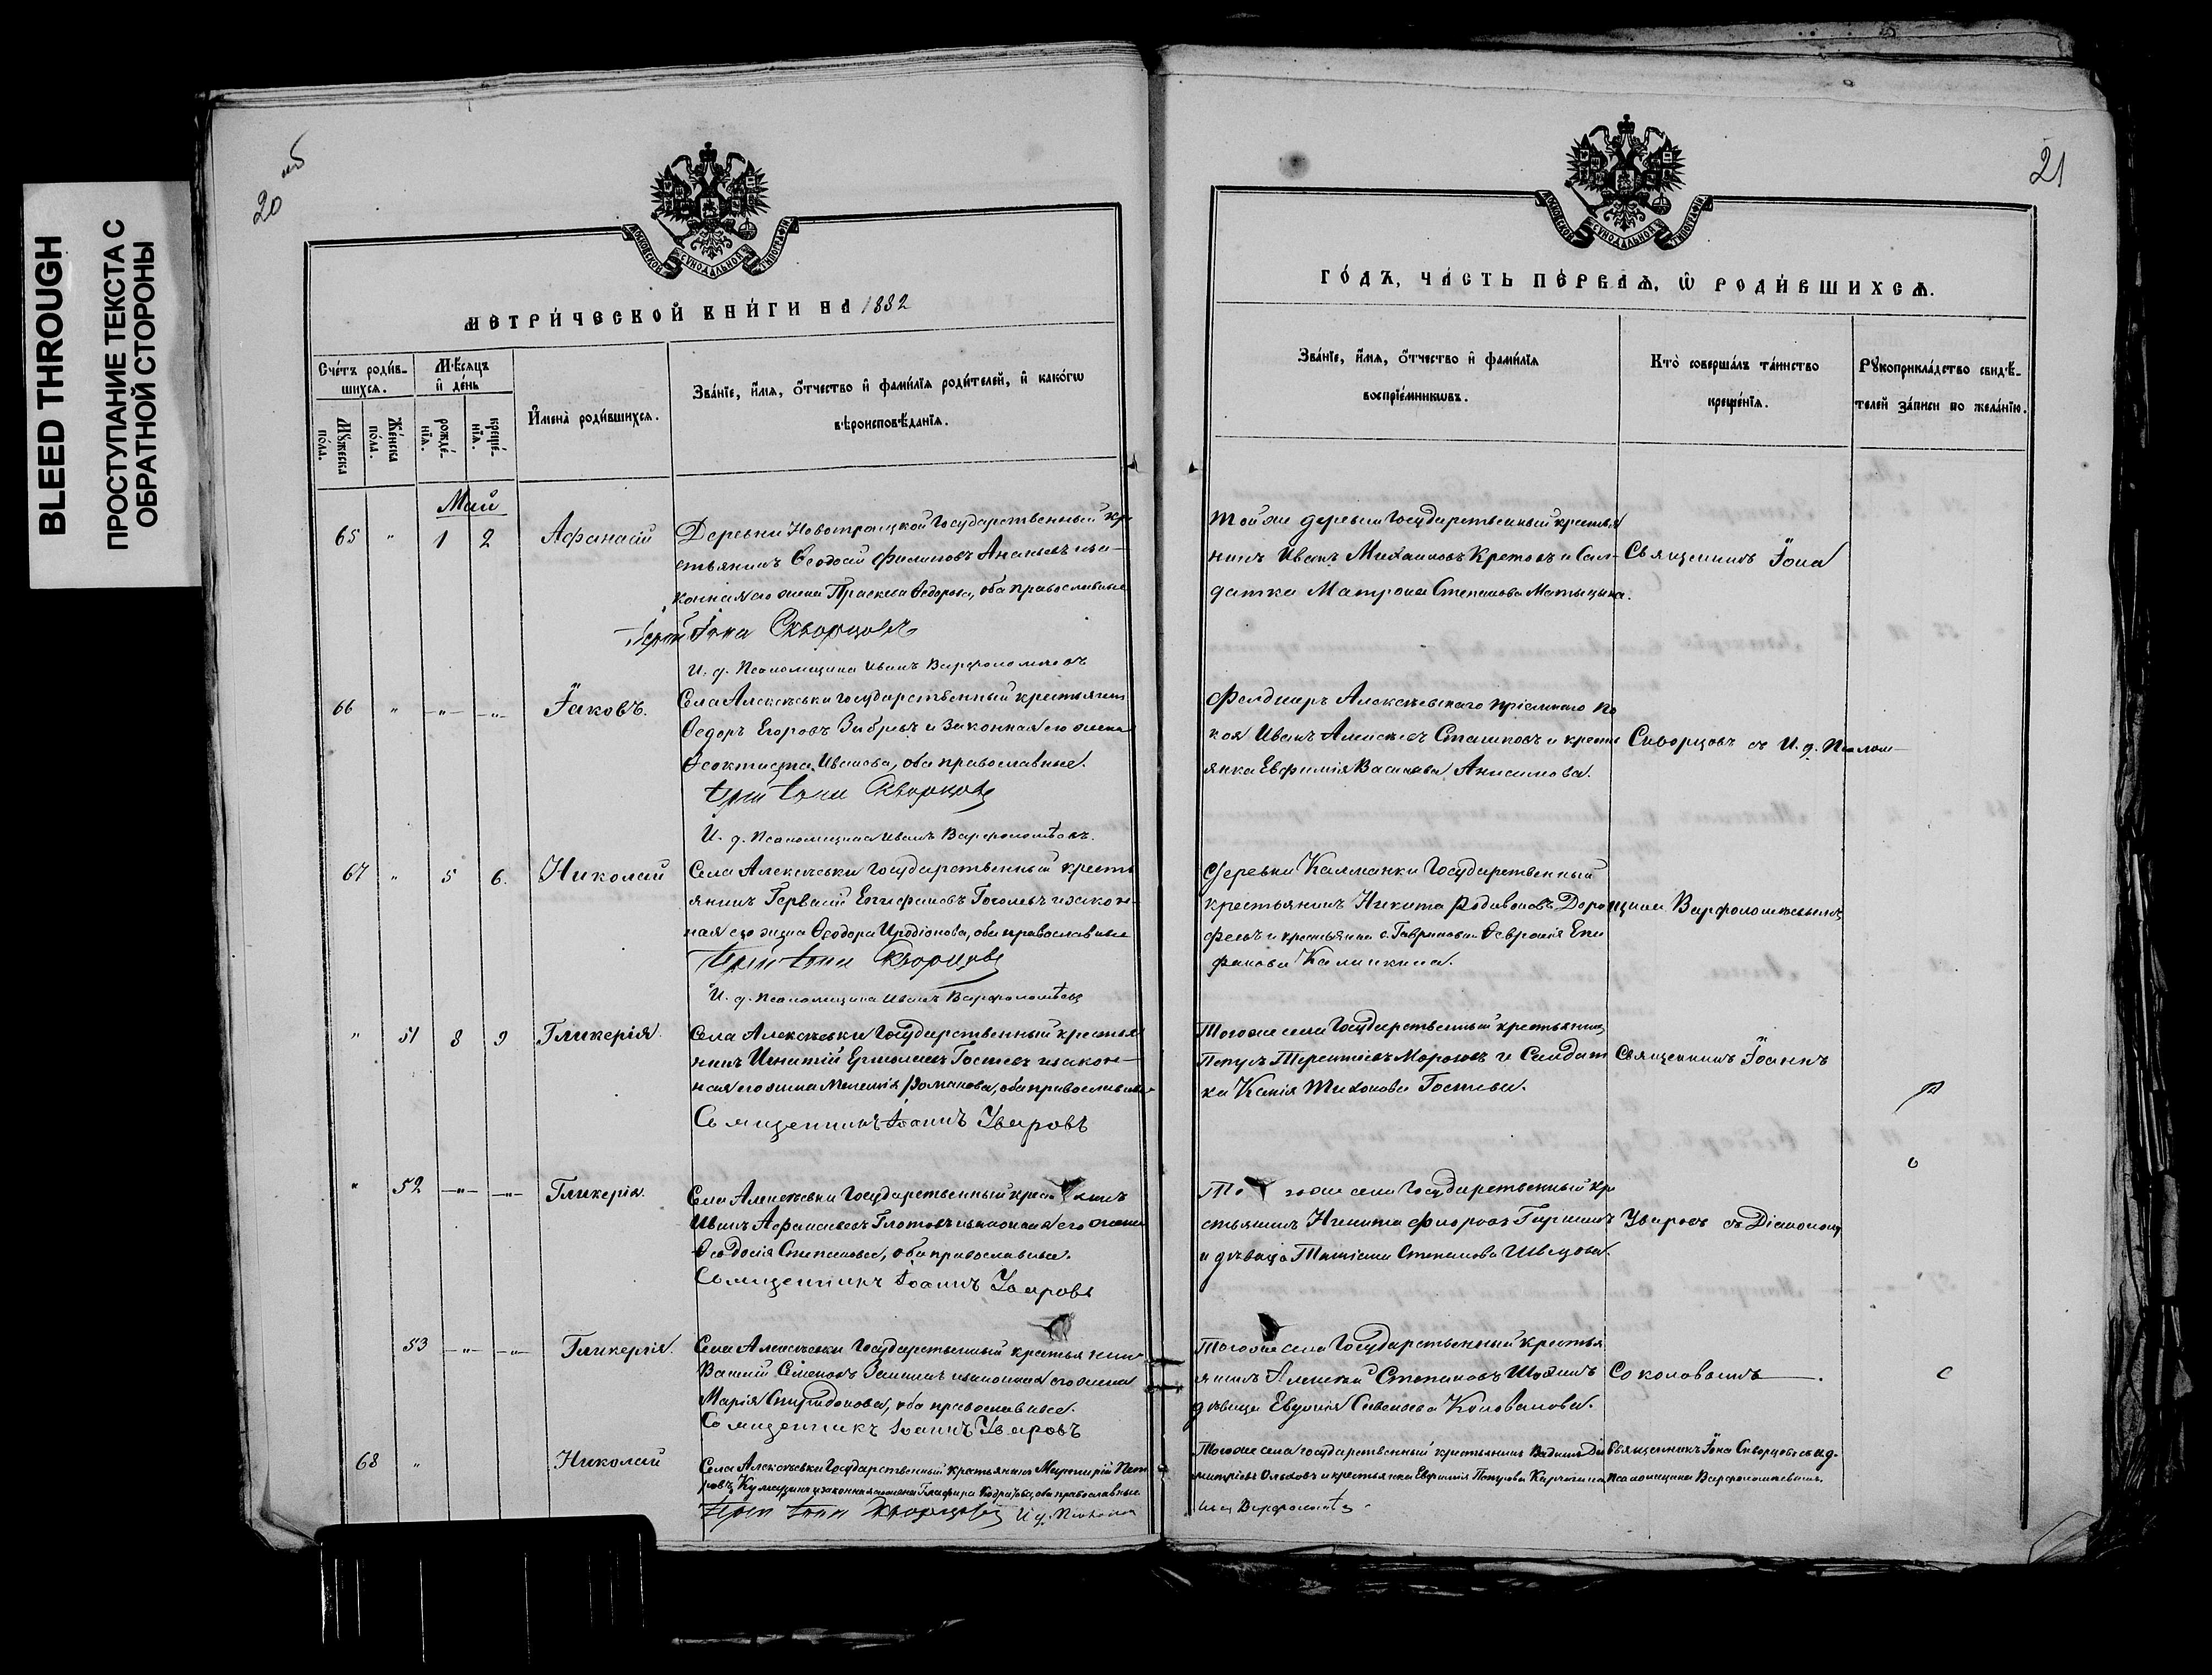 BLEED THROUGH
ПРОСТУПАНИЕ ТЕКСТА С
ОБРАТНОЙ СТОРОНЫ
20 об
МОСКОВСКОЙ СѴНОДАЛЬНОЙ ТИПОГРАФІИ
МЕТРИ́ЧЕСКОЙ КНИ́ГИ НА 1882
Сче́тъ роди́в-
шихсѧ.
Мѣ́сѧцъ
и҆ де́нь
Мꙋ́жеска
по́ла.
Же́нска
по́ла.
рожде́-
нїѧ.
креще́-
нїѧ.
И҆мена̀ роди́вшихсѧ.
Зва́нїе, и҆́мѧ, ѻ҆́тчество и҆ фами́лїѧ роди́телей, и҆ како́гѡ
вѣроисповѣ́данїѧ.
Май
65 " 1 2 Афанасій
Деревни Новотроицкой Государственный кре
стьянинъ Ѳеодосій Филиповъ Ананьевъ и за-
конная его жена Параскева Ѳедорова, оба православные
Іерей Іона Скворцовъ
И. д. Псаломщика Иванъ Варфоломеевъ
66 " -"- -"- Іаковъ.
Села Алексѣевки Государственный крестьянин
Ѳедоръ Егоровъ и законная его жена
Ѳеоктиста Иванова, оба православные.
Іерей Іона Скворцовъ
И. д. Псаломщика Иванъ Варфоломѣевъ.
67 " 5 6. Николай
Села Алексѣевки Государственный кресть
янинъ Гервасій Епифановъ Гоголевъ и закон-
ная его жена Ѳеодора Иродіонова, оба православные
Іерей Іона Скворцовъ
И. д. Псаломщика Иванъ Варфоломѣевъ
" 51 8 9 Гликерія.
Села Алексѣевки Государственный крестья
нинъ Игнатій Ермолаевъ Гостевъ и закон-
ная его жена Меланія Романова, оба православные
Священникъ Іоаннъ Уваровъ
" 52 -"- -"- Гликерія.
Села Алексѣевки Государственный крес янинъ
Иванъ Афанасьевъ Глотовъ и законная его жена
Ѳеодосія Степановна, оба православные.
Священникъ Іоаннъ Уваровъ
53 -"- -"- Гликерія.
Села Алексѣевки Государственный крестьянин
Василій Семеновъ и законная его жена
Марія Спиридонова, оба православные.
Священникъ Іоаннъ Уваровъ
68 " Николай
Села Алексѣевки Государственный крестьянинъ Мартирій Пет
ровъ и законная его жена Глафира оба православные
Іерей Іона Скворцовъ И. д. Псалом
21
МОСКОВСКОЙ СѴНОДАЛЬНОЙ ТИПОГРАФІИ
ГО́ДЪ, ЧА́СТЬ ПЕ́РВАѦ, Ѡ҆ РОДИ́ВШИХСѦ.
Зва́нїе, и҆́мѧ, ѻ҆́тчество и҆ фами́лїѧ
воспрїе́мникѡвъ.
Кто̀ соверша́лъ та́инство
креще́нїѧ.
Рꙋкоприкла́дство свидѣ́-
телей за́писи по жела́нїю.
Той же деревни Государственный крестья
нинъ Иванъ Михаиловъ Кретовъ и Сол-
датка Матрона Степанова Матыцына.
Священникъ Іона
Фелдшеръ Алексѣевскаго пріемнаго по
коя Иванъ Алексѣевъ Сташковъ и кресть
янка Евфимія Василіева Анисимова.
Скворцовъ съ И. д. Псалом-
Деревни Калманки Государственный
крестьянинъ Никита Родивоновъ Доро
феевъ и крестьянка с. Гавриловки Ѳевронія Епи
фанова Калинкина.
щика Варфоломеевымъ
Тогоже села Государственный крестьянинъ
Петръ Терентьевъ Морозовъ и Солдат
ка Ксенія Тихонова Гостева.
Священникъ Іоаннъ
То гоже села Государственный кре
стьянинъ Никита Фроловъ
и дѣвица Татіана Степанова Швецова.
Уваровъ съ Діакономъ
Тогоже села Государственный кресть
янинъ Алексѣй Степановъ
дѣвица Евдокія Савельева Колованова.
Соколовымъ.
Тогоже села Государственный крестьянинъ Ди
митріевъ Ольховъ и крестьянка Евфимія Петрова
Священникъ Іона Скворцовъ съ И. д.
псаломщика Варфоломеевымъ.
щика Варфоломѣевъ